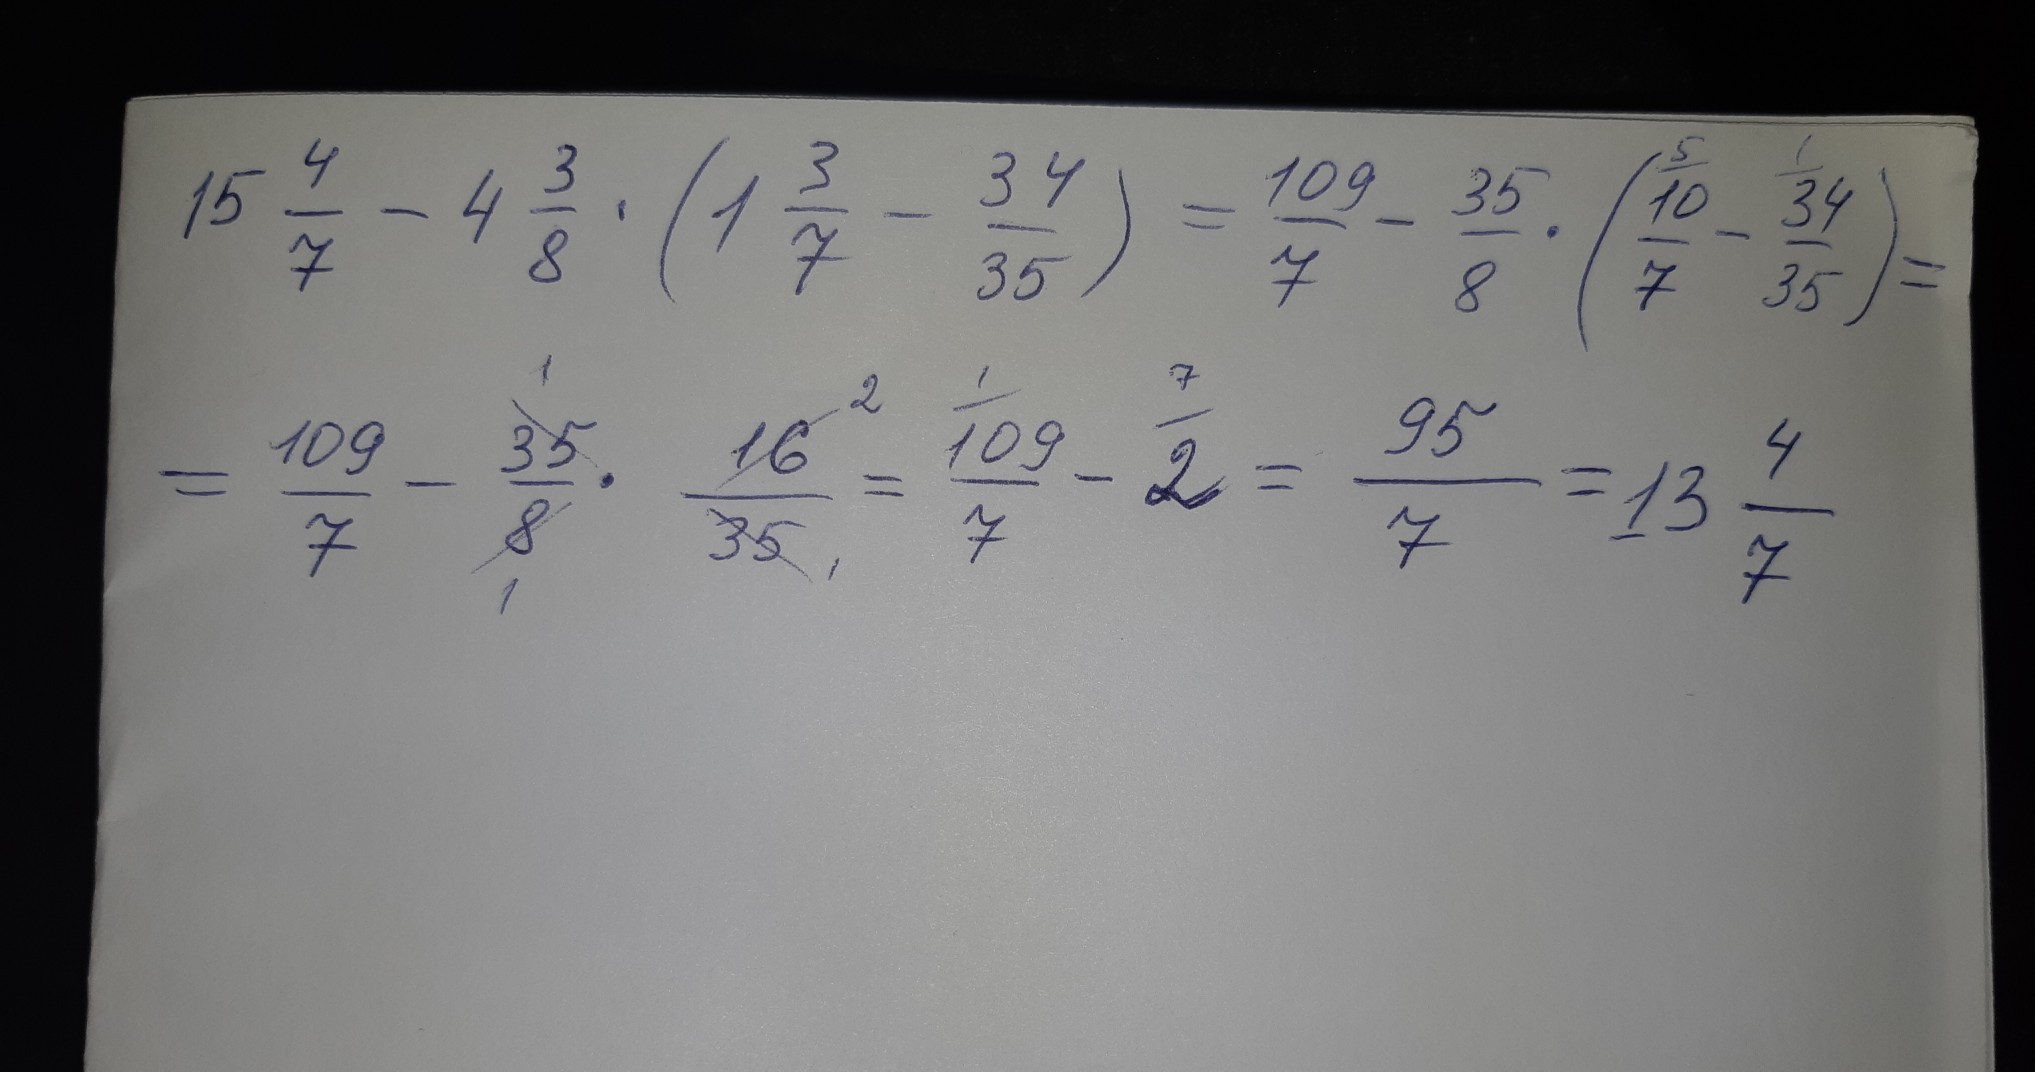 15 4/7 - 4 3/8 · (1 3/7 - 34/35) = 109/7 - 35/8 · (5/ 10/7 - 1/ 34/35) =
= 109/7 - 35 1/8 1 · 16 2/35 1 = 1/ 109/7 - 7/ 2 = 95/7 = 13 4/7